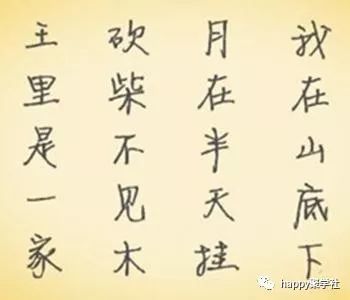 我在山底下
月在半天挂
砍柴不见木
王里是一家
happy聚学社